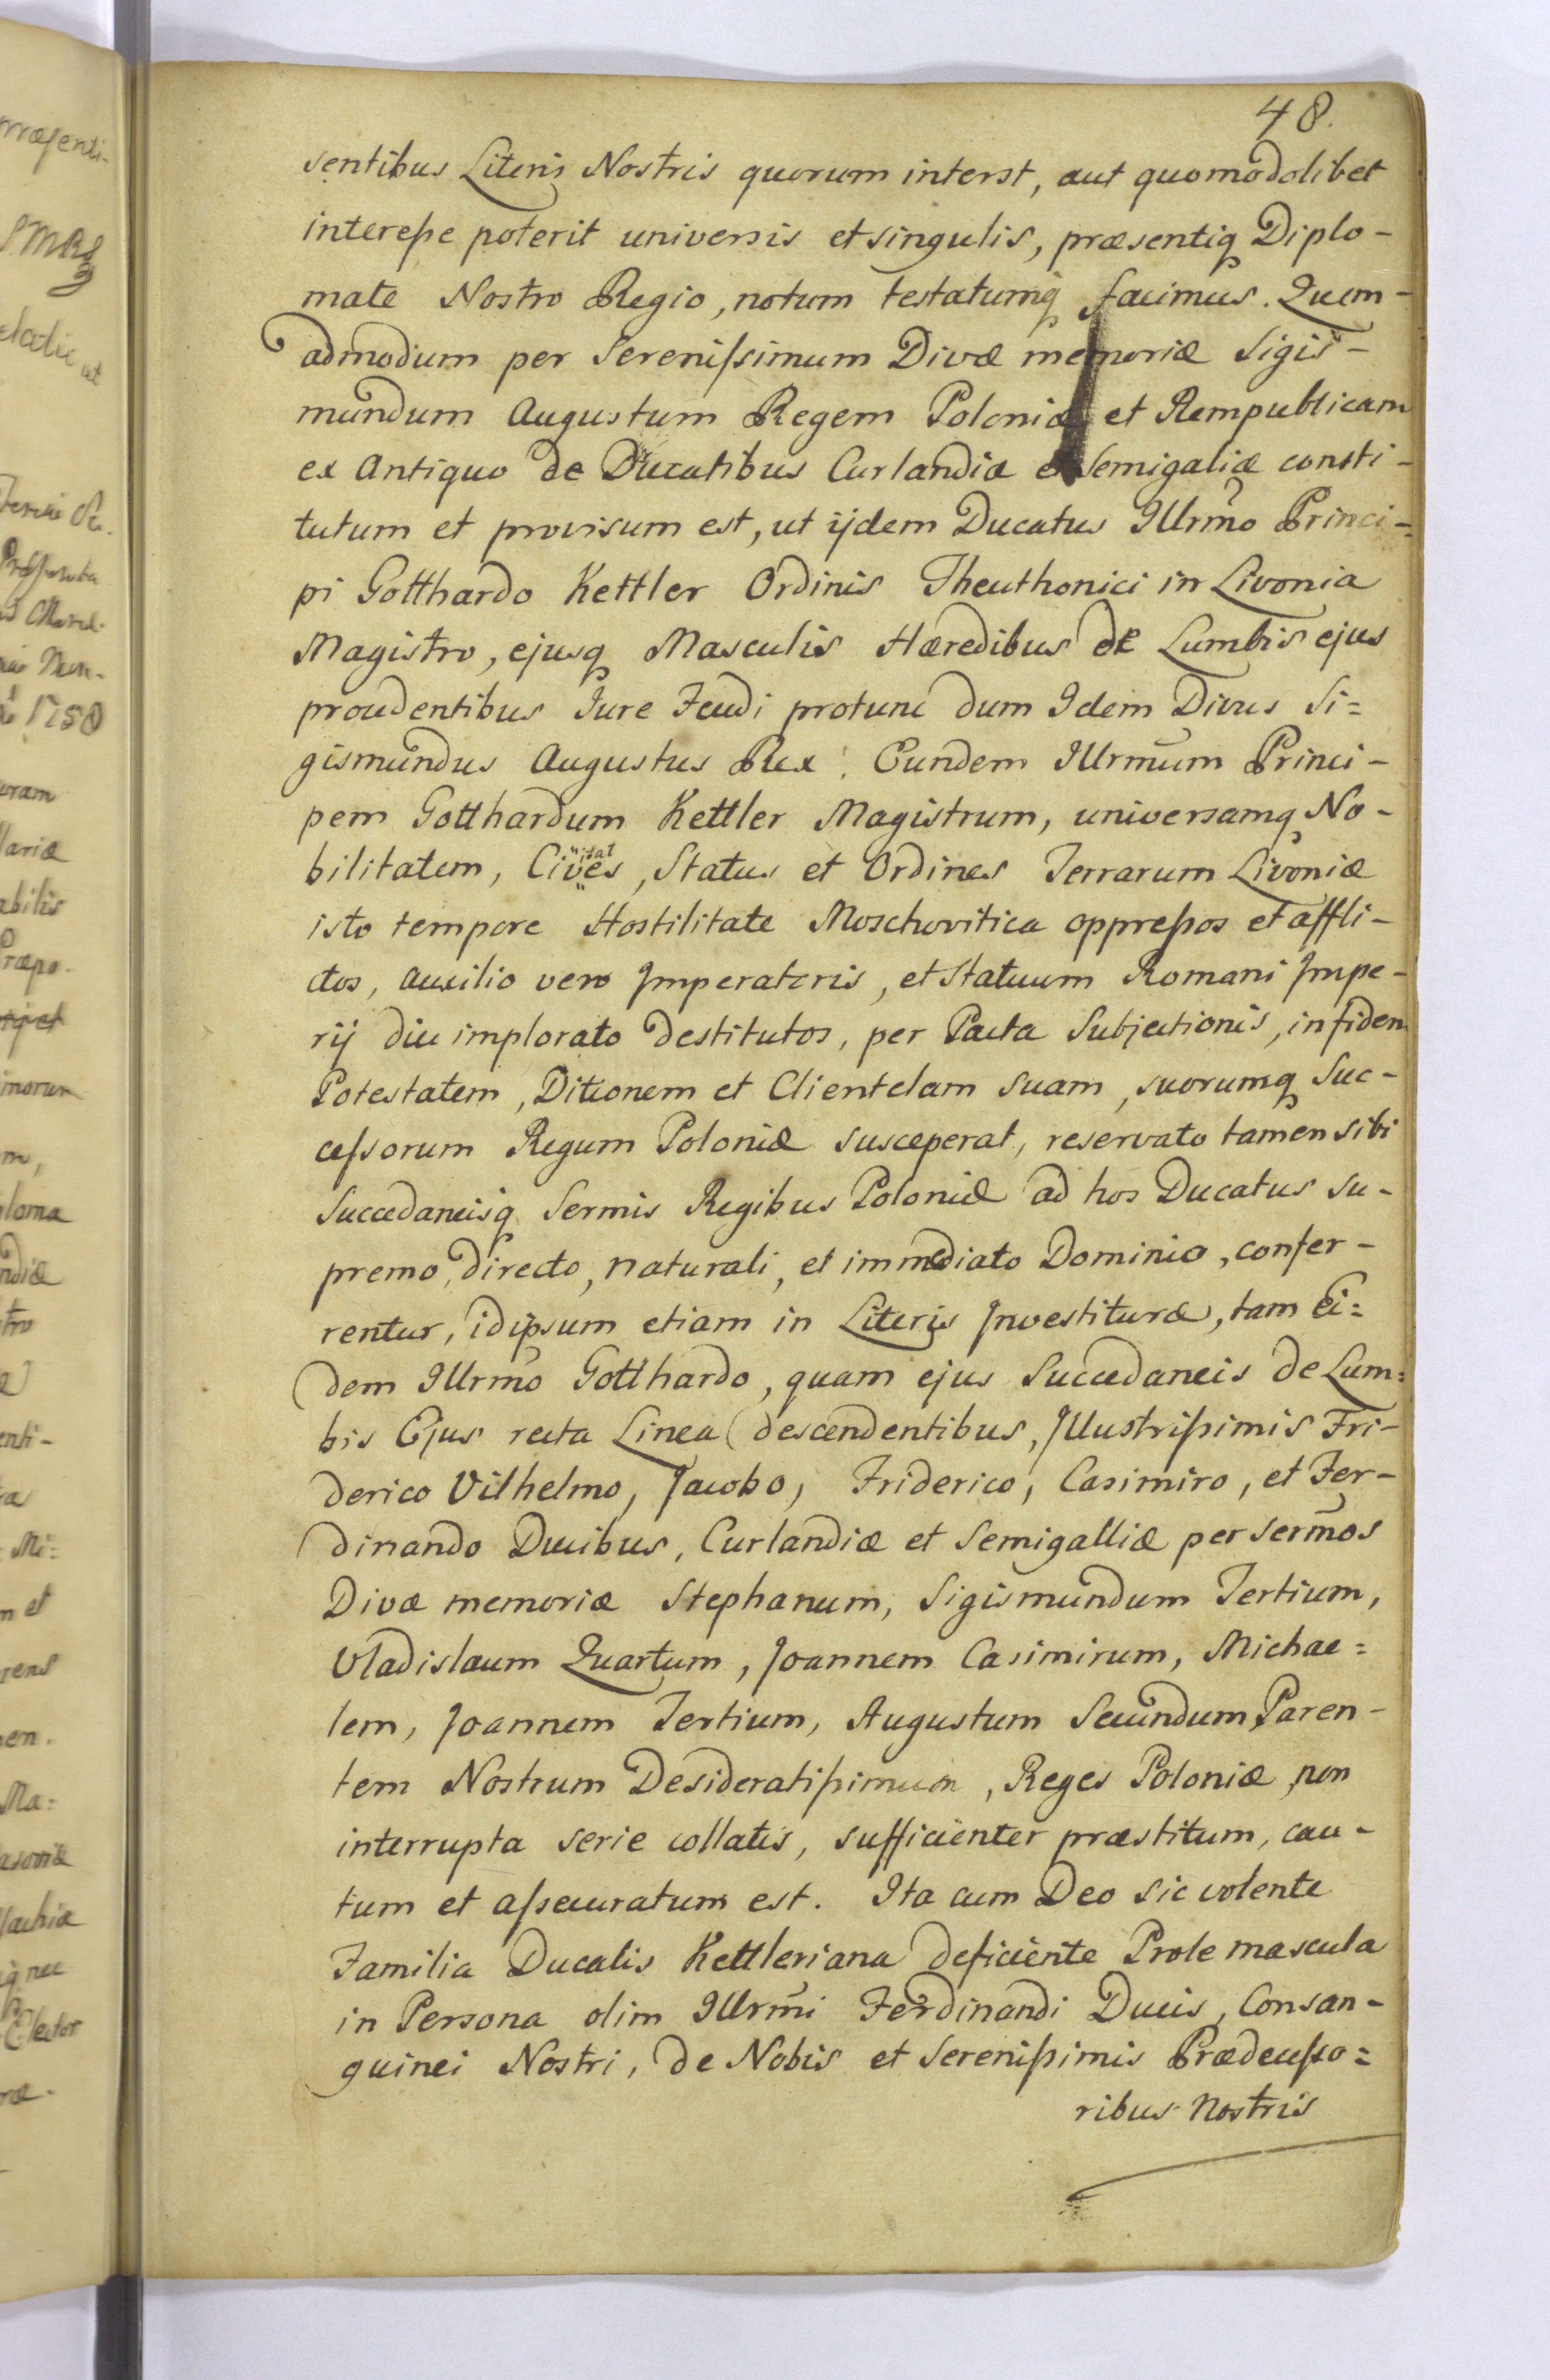 48.
sentibus Literis Nostris quorum interst, aut quomodolibet
interesse poterit universis et singulis, præsentiq Diplo-
mate Nostro Regio, notum testatumq facimus. Quem-
admodum per Serenissimum Divæ memoriæ Sigis-
mundum Augustum Regem Poloniæ et Rempublicam
ex Antiquo de Ducatibus Curlandiæ et Semigaliæ consti-
tutum et provisum est, ut ijdem Ducatus Illrmo Princi-
pi Gotthardo Kettler Ordinis Theuthonici in Livonia
Magistro, ejusq Masculis Hæredibus de Lumbis ejus
procedentibus Jure Feudi protunc dum Idem Divus Si=
gismundus Augustus Rex. Eundem Illrmum Princi-
pem Gotthardum Kettler Magistrum, universamq No-
bilitatem, Civitates, Status et Ordines Terrarum Livoniæ
isto tempore Hostilitate Moschovitica oppressos et affli-
ctos, auxilio vero Imperatoris, et Statuum Romani Impe-
rij diu implorato destitutos, per Pacta Subjectionis, in fidem
Potestatem, Ditionem et Clientelam suam, suorumq Suc-
cessorum Regum Poloniæ susceperat, reservato tamen sibi
Succedaneisq Sermis Regibus Poloniæ ad hos Ducatus su-
premo, directo, naturali, et immediato Dominio, confer-
rentur, idipsum etiam in Literis Investituræ, tam Ei=
dem Illrmo Gotthardo, quam ejus Succedaneis de Lum=
bis Ejus recta Linea descendentibus, Illustrissimis Fri-
derico Vilhelmo, Jacobo, Friderico, Casimiro, et Fer-
dinando Ducibus, Curlandiæ et Semigalliæ per sermos
Divæ memoriæ Stephanum, Sigismundum Tertium,
Vladislaum Quartum, Joannem Casimirum, Michae=
lem, Joannem Tertium, Augustum Secundum Paren-
tem Nostrum Desideratissimum, Reges Poloniæ, non
interrupta serie collatis, sufficienter præstitum, cau-
tum et assecuratum est. Ita cum Deo sic volente
Familia Ducalis Kettleriana deficiente Prole mascula
in Persona olim Illrmi Ferdinandi Ducis, Consan-
guinei Nostri, de Nobis et Serenissimis Prædecesso=
ribus Nostris